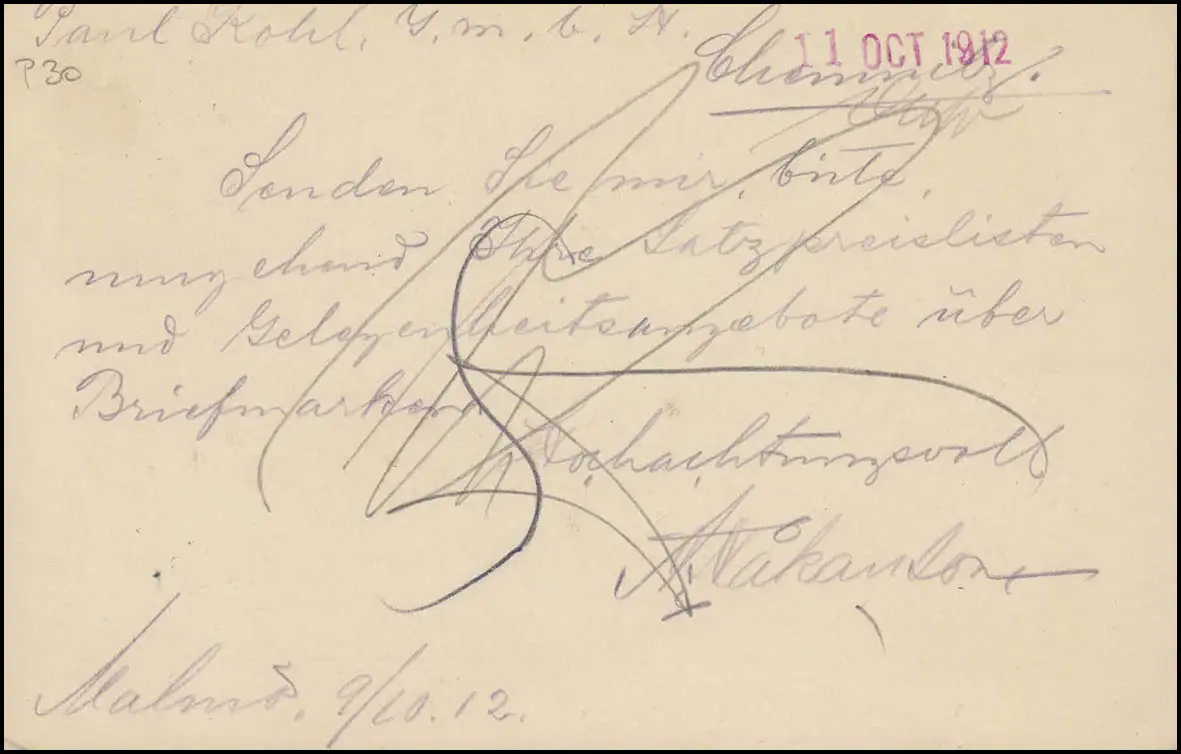 Paul Kohl, G.m.b.H.
11 OCT 1912
Chemnitz.
P30
Senden Sie mir, bitte,
umgehend Ihre Satzpreislisten
und Gelegenheitsangebote über
Briefmarken
Hochachtungsvoll
Håkanson
Malmö, 9/10.12.